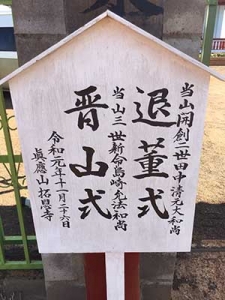 当山開創二世田中清元大和尚
退董式
当山三世新命島崎允法和尚
晋山式
令和元年十一月二十六日
眞應山拓恩寺